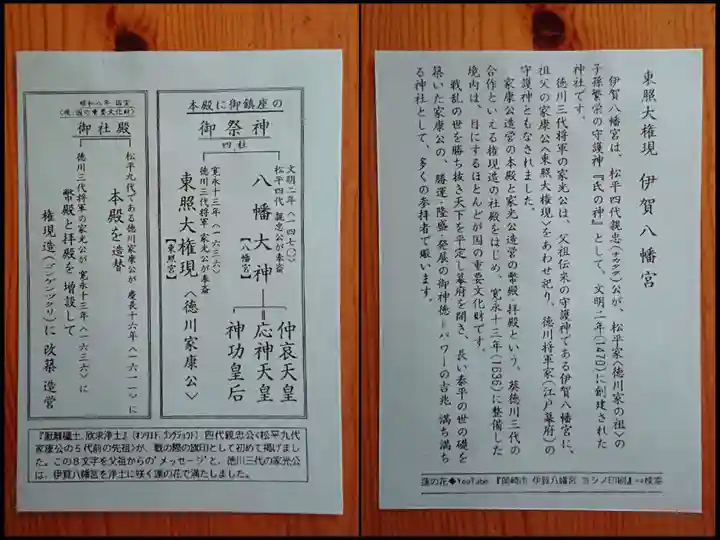 本殿に御鎮座の
御祭神
四社
文明二年〈一四七〇〉に
松平四代 親忠公が奉斎
八幡大神
【八幡宮】
仲哀天皇
応神天皇
神功皇后
寛永十三年〈一六三六〉に
徳川三代将軍 家光公が奉斎
東照大権現〈徳川家康公〉
【東照宮】
昭和八年 国宝
〈現:国の重要文化財〉
御社殿
松平九代である徳川家康公が 慶長十六年〈一六一一〉に
本殿を造替
徳川三代将軍の家光公が 寛永十三年〈一六三六〉に
幣殿と拝殿を 増設して
権現造〈ゴンゲンヅクリ〉に 改築 造営
『厭離穢土、欣求浄土』〈ｵﾝﾘｴﾄﾞ、ｺﾞﾝｸﾞｼﾞｮｳﾄﾞ〉 四代親忠公〈松平九代
家康公の5代前の先祖〉が、戦の際の旗印として初めて掲げまし
た。この8文字を父祖からの'メッセージ'と、徳川三代の家光公
は、伊賀八幡宮を浄土に咲く蓮の花で満たしました。
東照大権現 伊賀八幡宮
伊賀八幡宮は、松平四代親忠〈チカタダ〉公が、松平家〈徳川家の祖〉の
子孫繁栄の守護神『氏の神』として、文明二年(1470)に創建された
神社です。
徳川三代将軍の家光公は、父祖伝来の守護神である伊賀八幡宮に、
祖父の家康公〈東照大権現〉をあわせ祀り、徳川将軍家(江戸幕府)の
守護神ともなされました。
家康公造営の本殿と家光公造営の幣殿・拝殿という、葵徳川三代の
合作といえる権現造の社殿をはじめ、寛永十三年(1636)に整備した
境内は、目にするほとんどが国の重要文化財です。
戦乱の世を勝ち抜き天下を平定し幕府を開き、長い泰平の世の礎を
築いた家康公の、勝運・隆盛・発展の御神徳＝パワーの吉兆 満ち満ち
る神社として、多くの参拝者で賑います。
蓮の花◆YouTube 『岡崎市 伊賀八幡宮 ヨシノ印刷』⇒検索